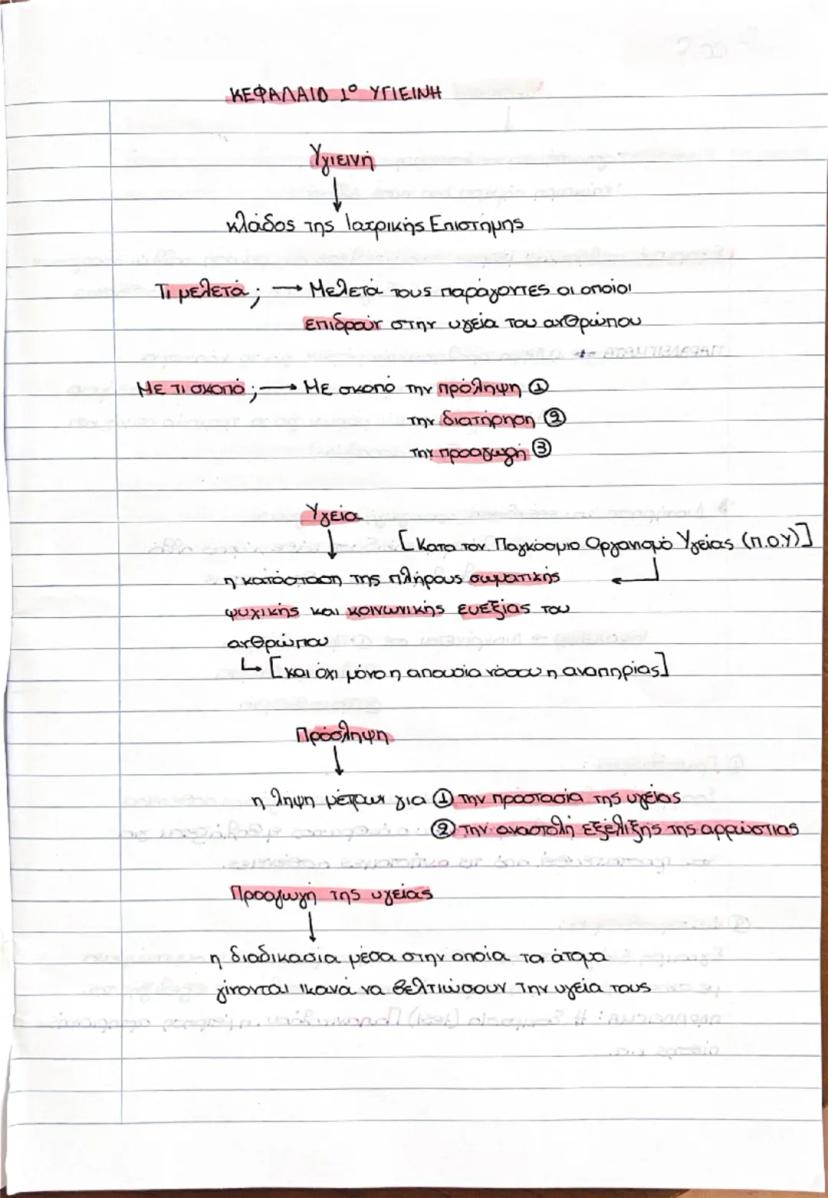 ΚΕΦΑΛΑΙΟ 1º ΥΓΙΕΙΝΗ
Υγιεινή
↓
κλάδος της Ιατρικής Επιστήμης
Τι μελετά; → Μελετά τους παράγοντες οι οποίοι
επιδρούν στην υγεία του ανθρώπου
Με τι σκοπό; → Με σκοπό την πρόληψη ①
την διατήρηση ②
την προαγωγή ③
Υγεία
↓ [Κατα τον Παγκόσμιο Οργανισμό Υγείας (Π.Ο.Υ)]
η κατάσταση της πλήρους σωματικής ←
ψυχικής και κοινωνικής ευεξίας του
ανθρώπου
↳ [και όχι μόνο η απουσία νόσου η αναπηρίας]
Πρόσληψη
↓
η ληψη μέτρων για ① την προστασία της υγείας
② την αναστολή εξέλιξης της αρρώστιας
Προαγωγή της υγείας
↓
η διαδικασία μέσα στην οποία τα άτομα
γίνονται ικανά να βελτιώσουν την υγεία τους